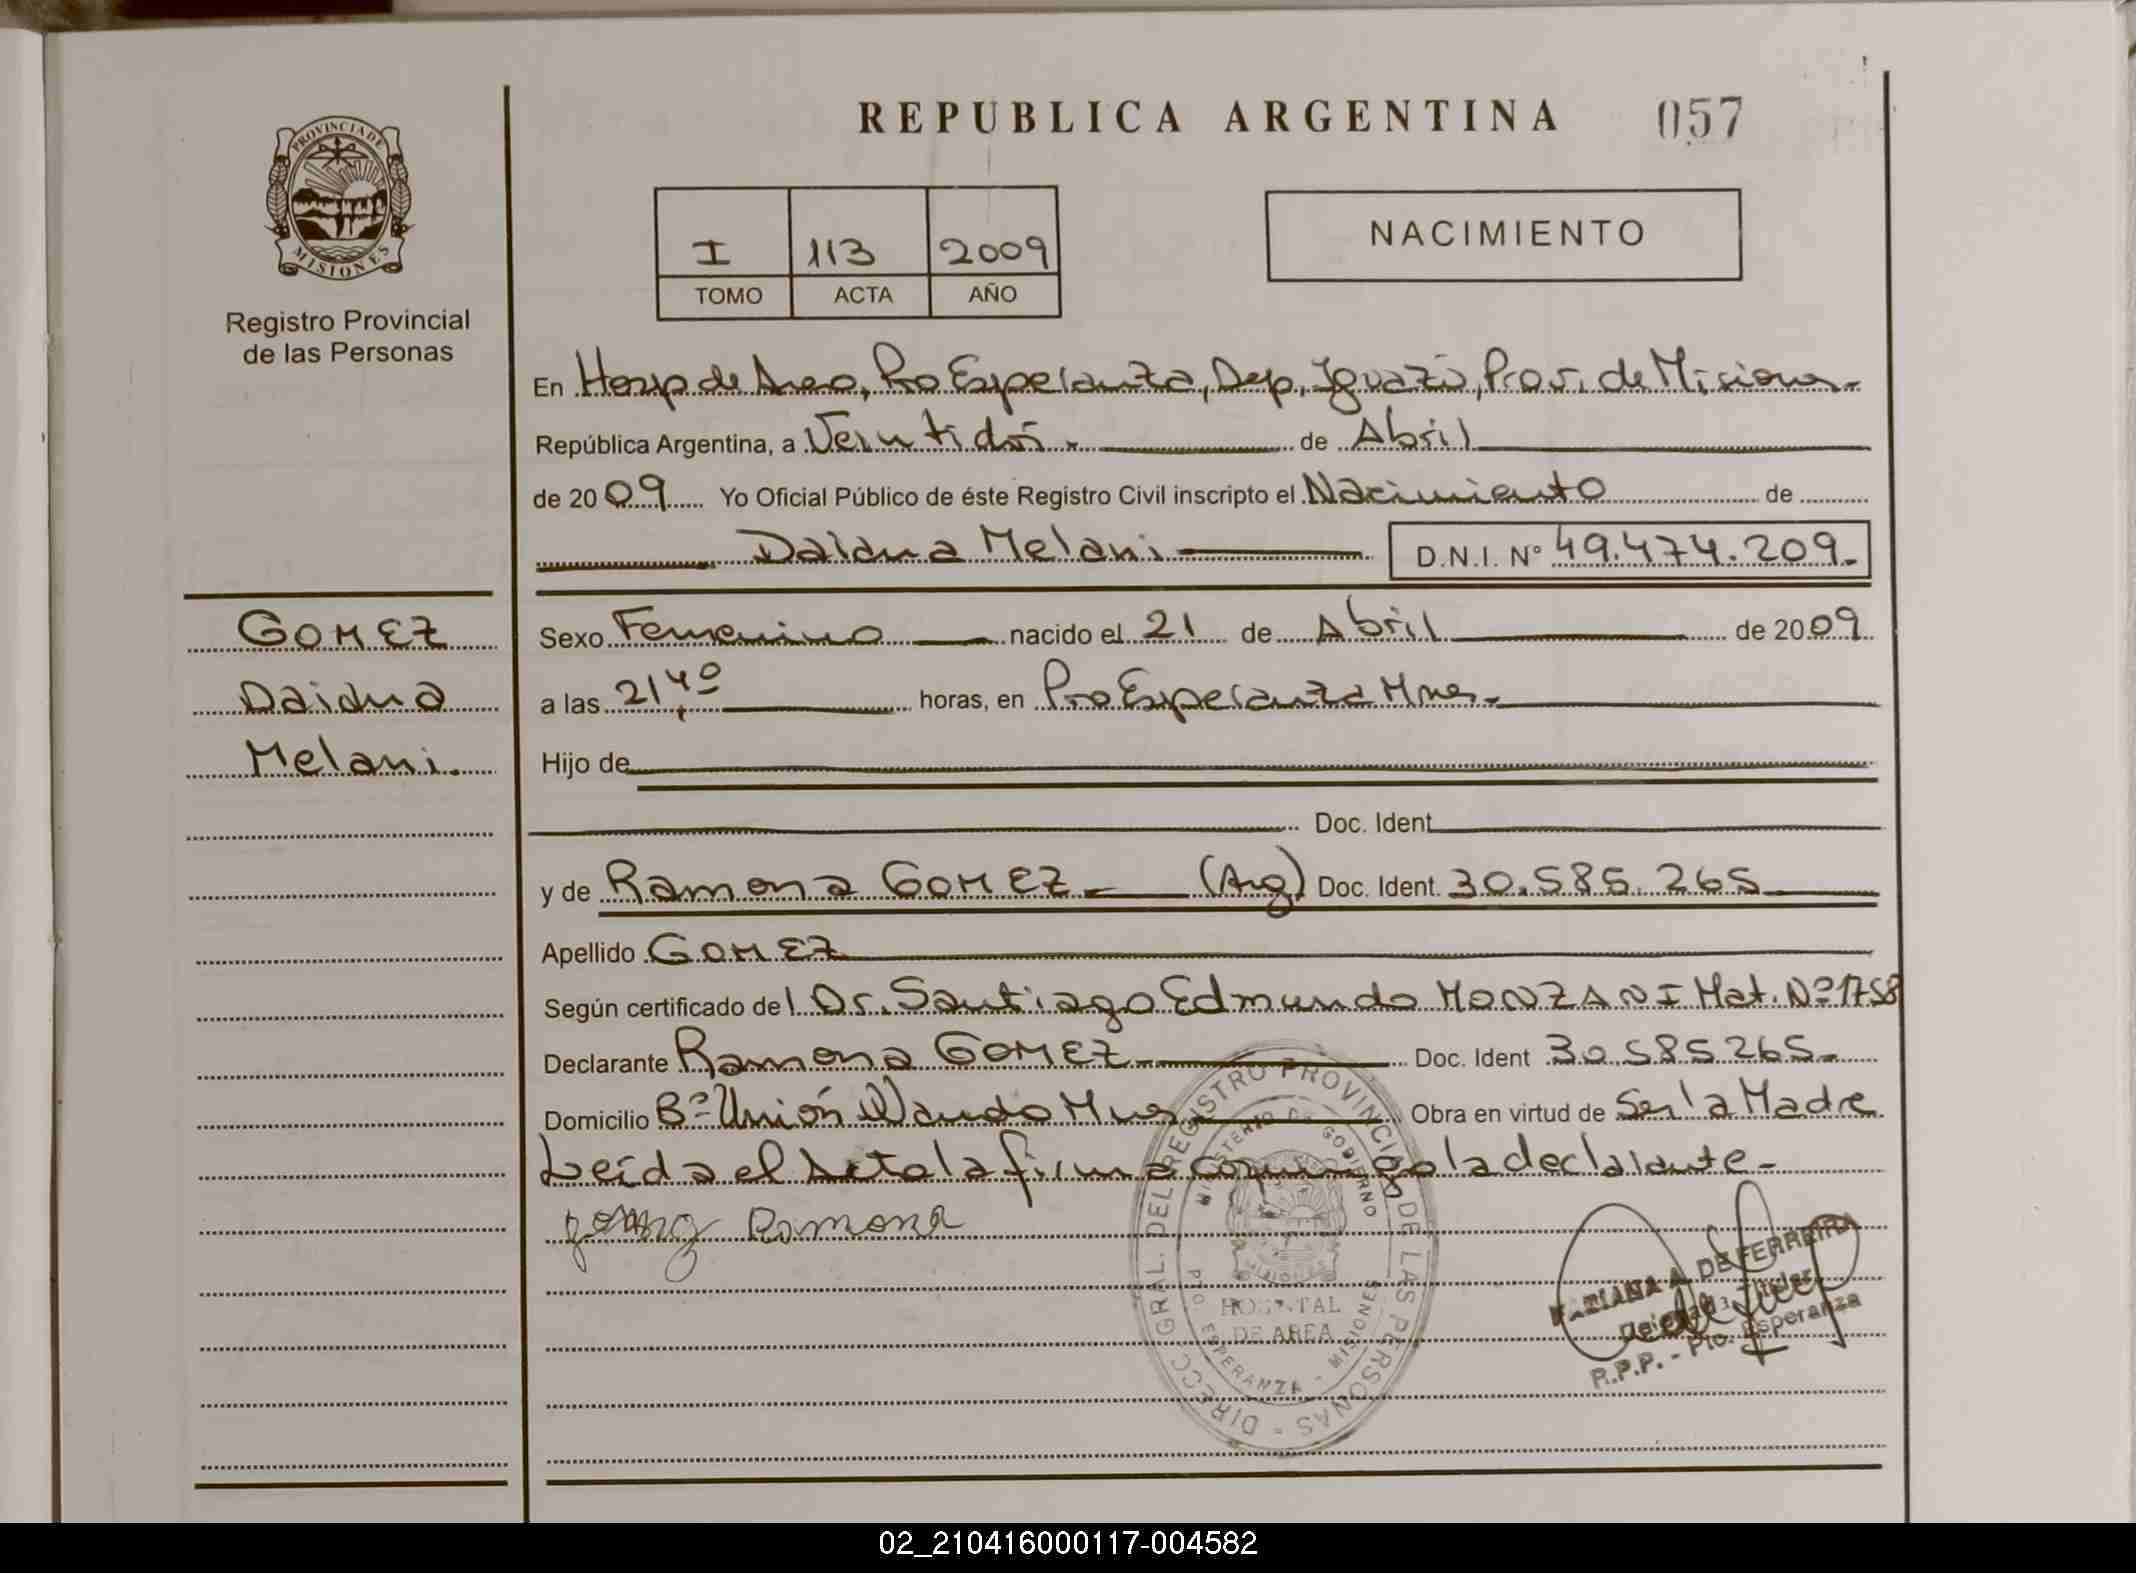 REPUBLICA ARGENTINA 057
PROVINCIA DE
MISIONES
Registro Provincial
de las Personas
I 113 2009
TOMO ACTA AÑO
NACIMIENTO
En Hosp de Area, Pto Esperanza, Dep. Iguazú, Prov. de Misiones.-
República Argentina, a Veintidós.- de Abril
de 2009 Yo Oficial Público de éste Registro Civil inscripto el Nacimiento de
Daiana Melani D.N.I. N° 49.474.209.-
GOMEZ
Daiana
Melani.
Sexo Femenino nacido el 21 de Abril de 2009
a las 21,40 horas, en Pto Esperanza Mnes.-
Hijo de
Doc. Ident
y de Ramona GOMEZ.- (Arg) Doc. Ident. 30.585.265
Apellido GOMEZ
Según certificado del Dr. Santiago Edmundo MONZANI Mat. Nº 1758
Declarante Ramona GOMEZ.- Doc. Ident 30.585.265.-
Domicilio Bº Unión Wanda Mnes. Obra en virtud de Ser la Madre
Leída el Acta la firma conmigo la declarante.-
gomez Ramona
DIRECC. GRAL. DEL REGISTRO PROVINCIAL DE LAS PERSONAS
MINISTERIO DE GOBIERNO
MISIONES
HOSPITAL
DE AREA
ESPERANZA - MISIONES
A. DE FERREIRA
R.P.P. - Pto. Esperanza
02_210416000117-004582